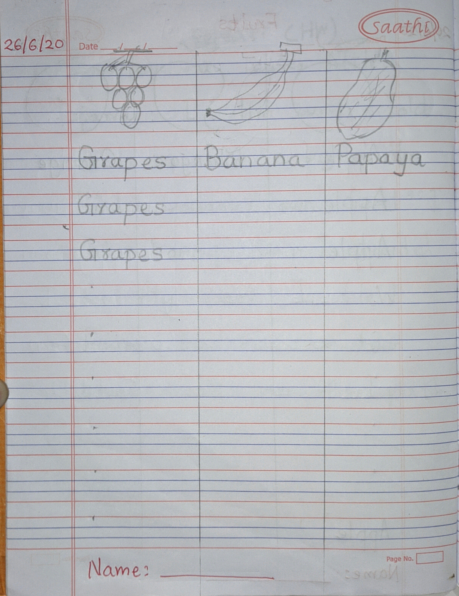 Saathi
26/6/20 Date
Grapes Banana Papaya
Grapes
Grapes
Page No.
Name: